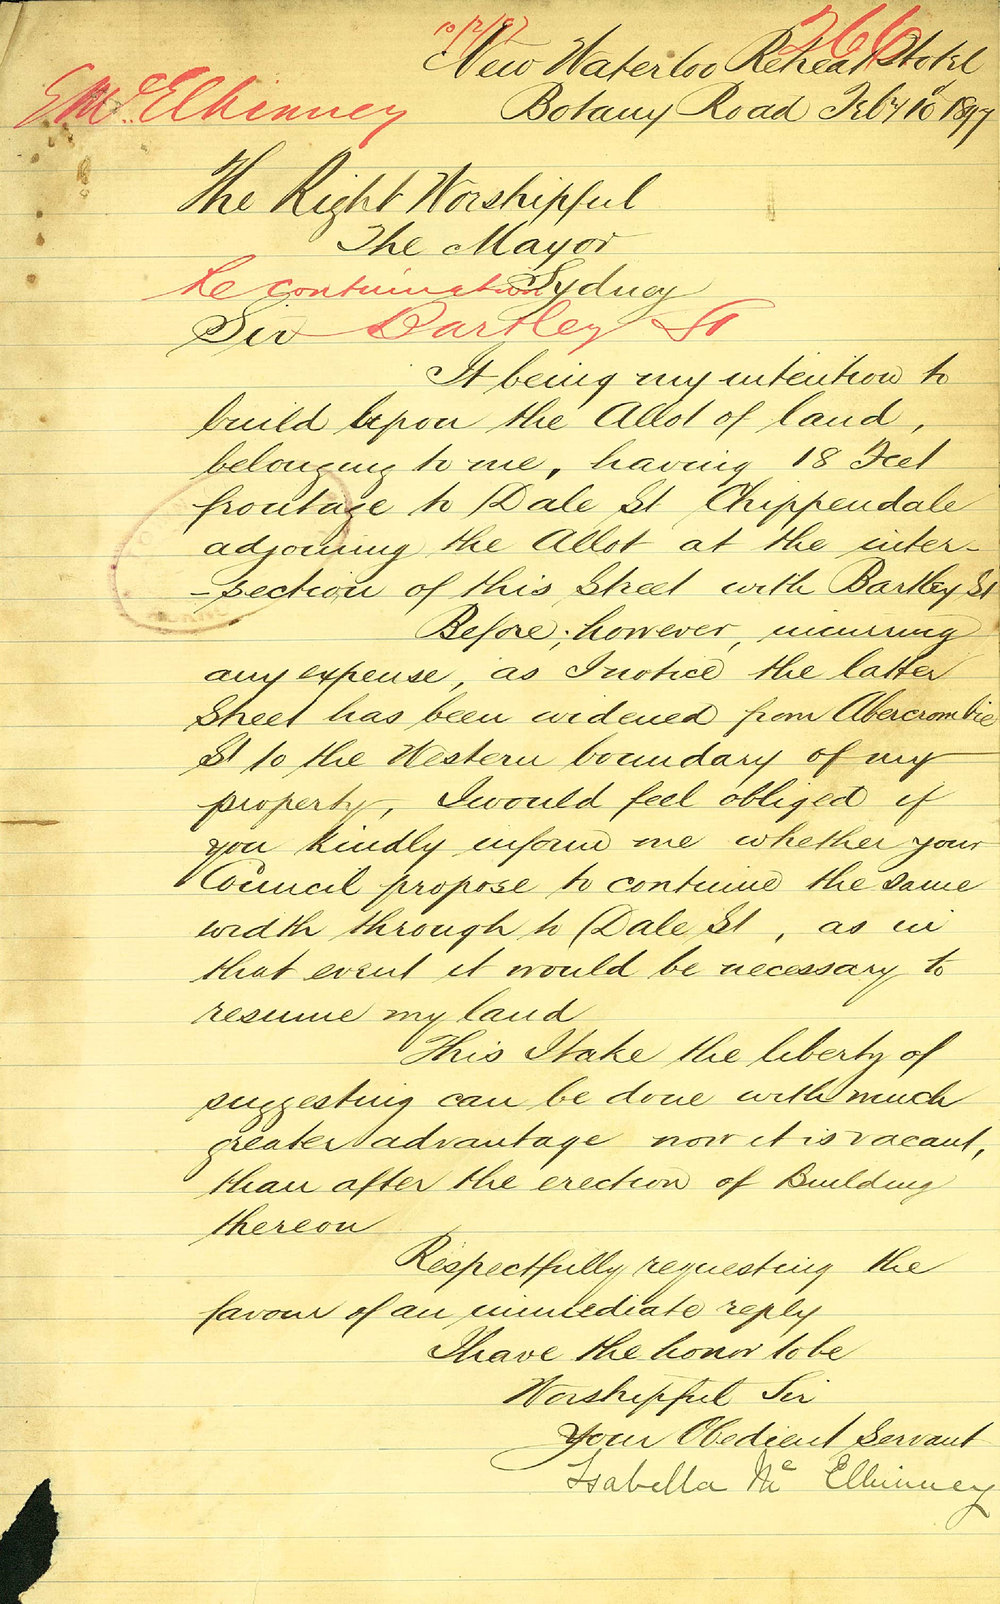 10/2/97
266
New Waterloo Retreat Hotel
E McElhinney
Botany Road Feby 10th 1897
The Right Worshipful
The Mayor
Re continuation
Sydney
Sir
Bartley St
It being my intention to
build upon the Allot of land,
belonging to me, having 18 Feet
frontage to Dale St Chippendale
adjoining the Allot at the inter-
-section of this Street with Bartley St
Before, however, incurring
any expense, as I notice the latter
Street has been widened from Abercrombie
St to the Western boundary of my
property, I would feel obliged if
you kindly inform me whether your
Council propose to continue the same
width through to Dale St, as in
that event it would be necessary to
resume my land
This I take the liberty of
suggesting can be done with much
greater advantage now it is vacant,
than after the erection of Building
thereon
Respectfully requesting the
favour of an immediate reply
I have the honor to be
Worshipful Sir
Your Obedient Servant
Isabella McElhinney